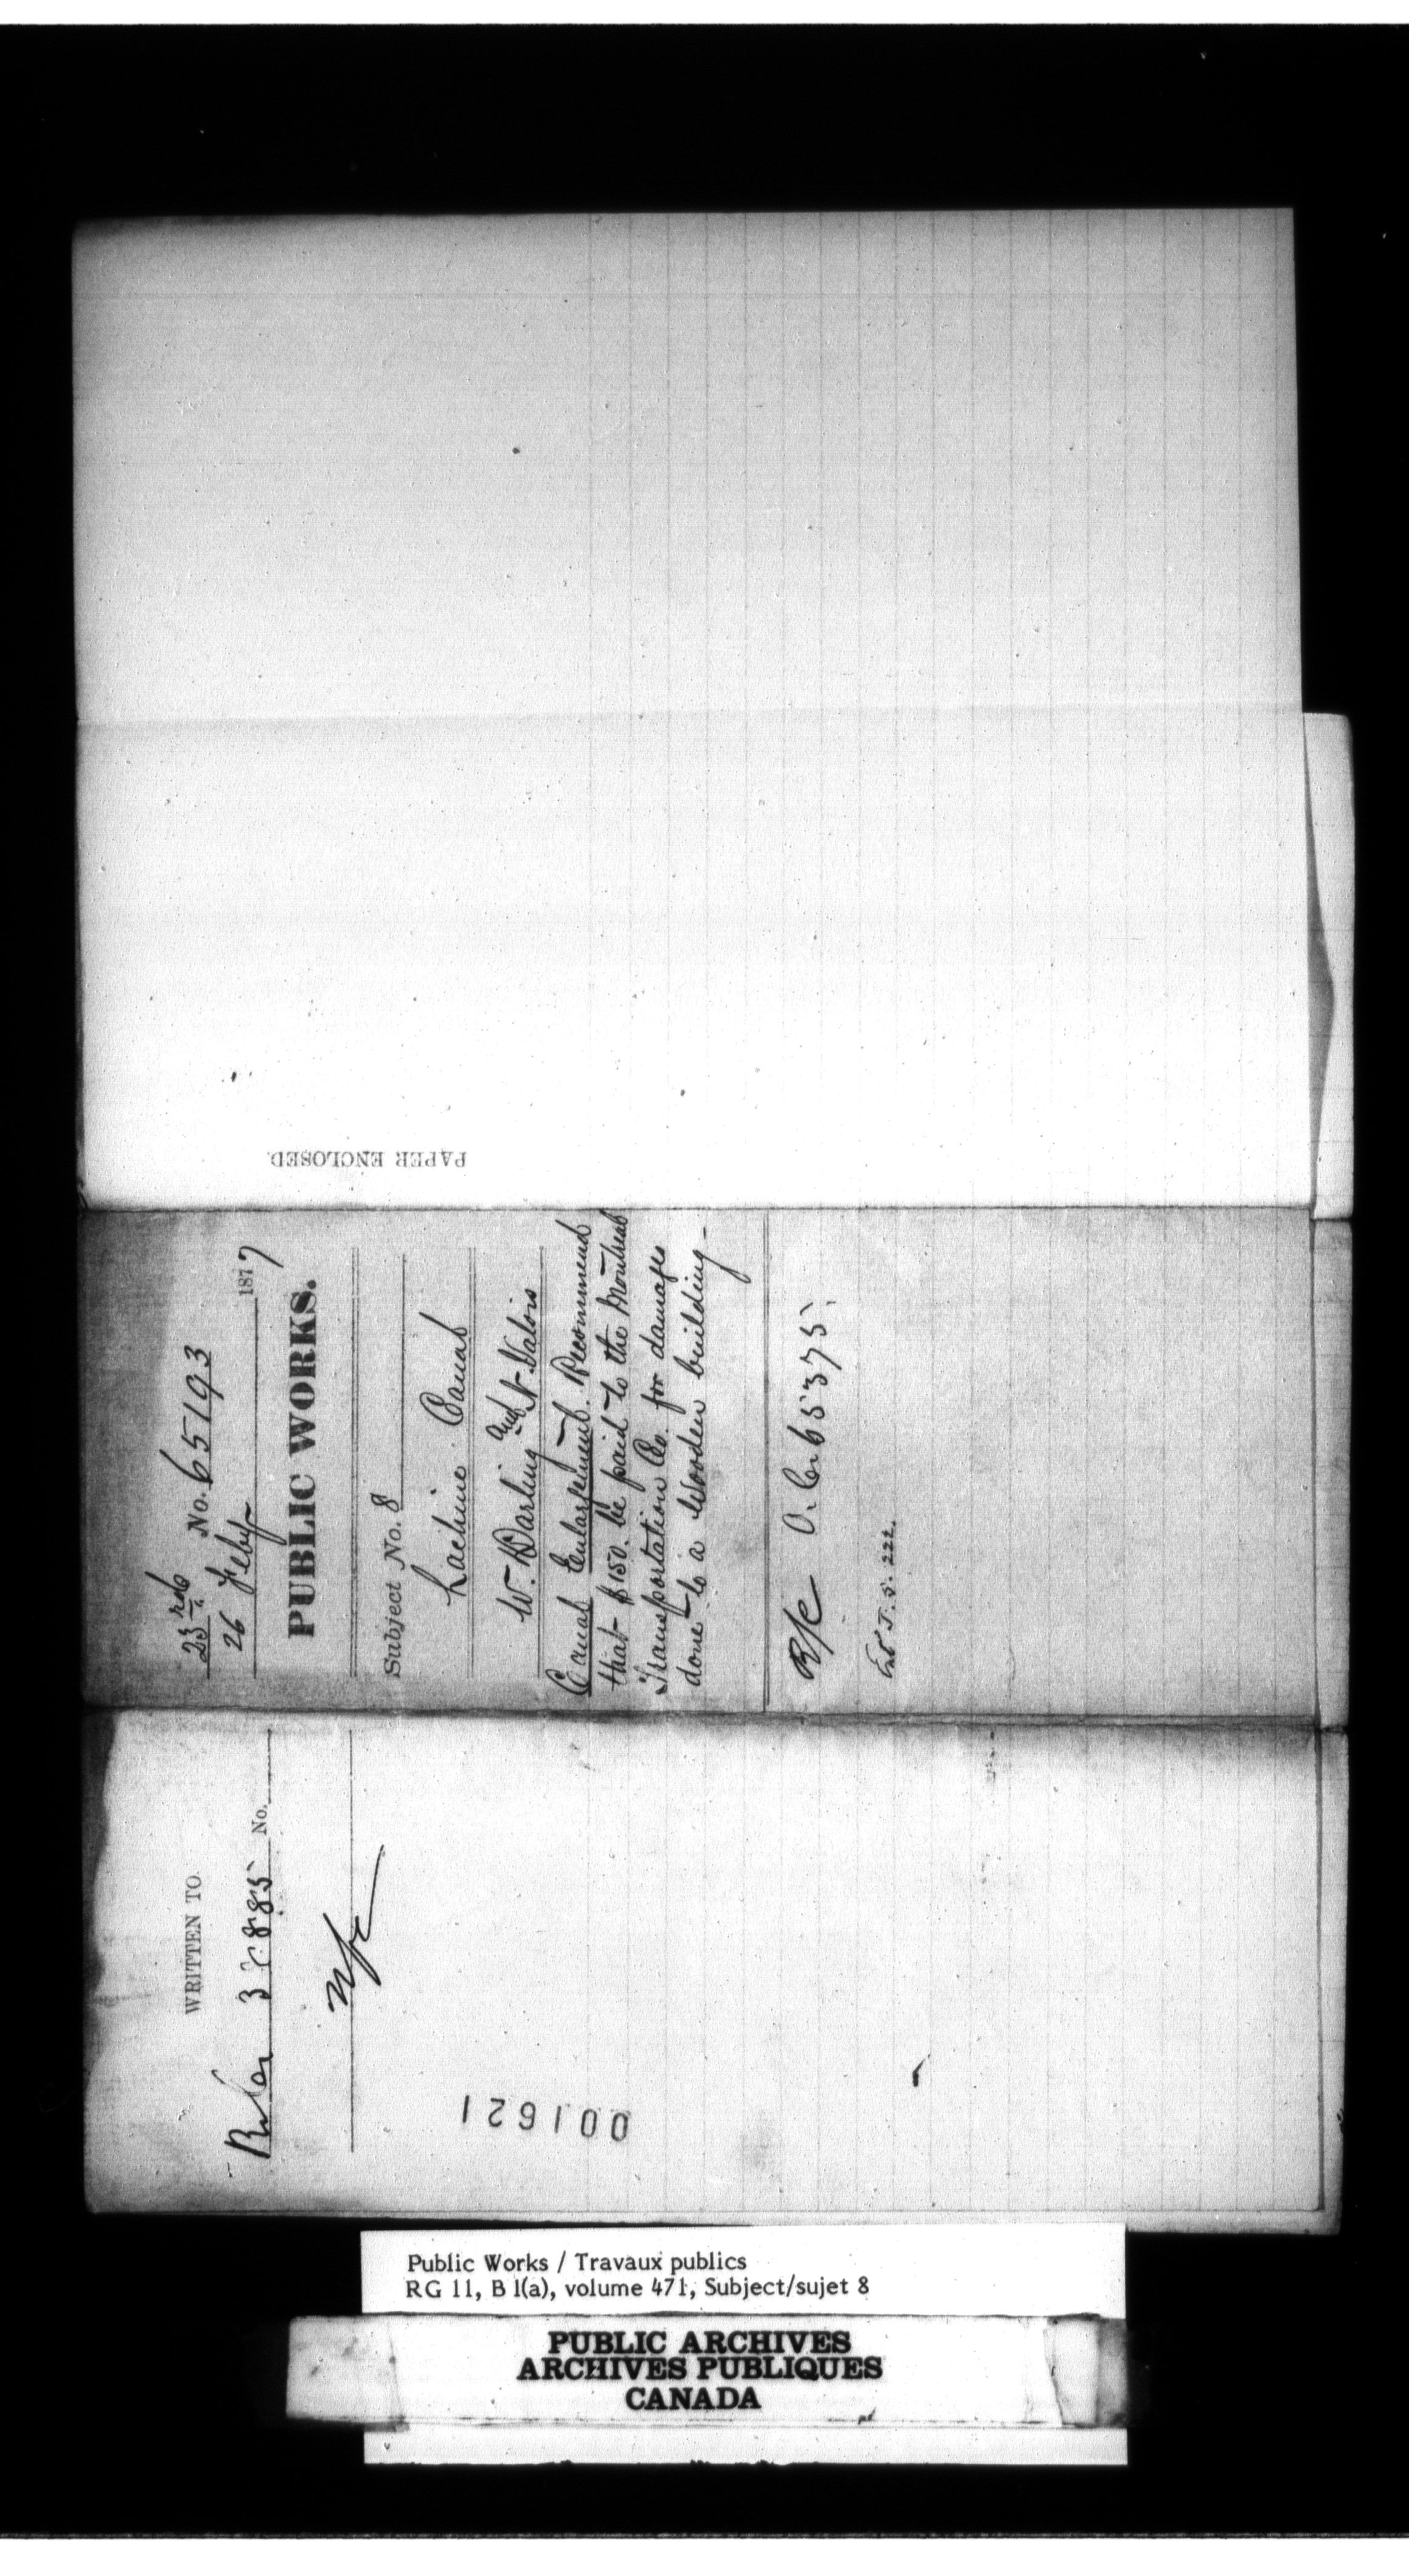 PAPER ENCLOSED.
23rd No. 65193
26 Feby 1877
PUBLIC WORKS.
Subject No. 8
Lachine Canal
W. Darling and N. Valois
Canal Enlargement. Recommend
that $150. be paid to the Montreal
Transportation Co. for damages
done to a wooden building-
R/e 65375
222.
WRITTEN TO
No.
001621
Public Works / Travaux publics
RG 11, B 1(a), volume 471, Subject/sujet 8
PUBLIC ARCHIVES
ARCHIVES PUBLIQUES
CANADA